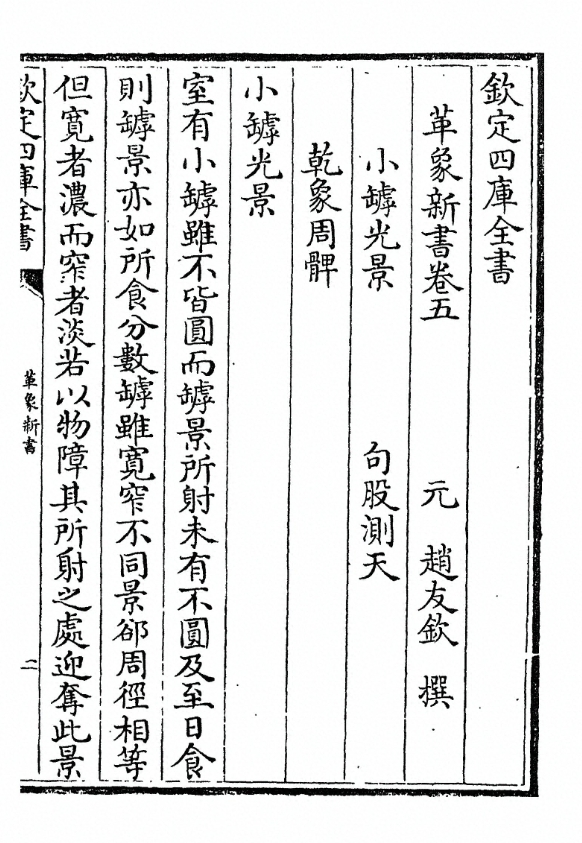 欽定四庫全書
革象新書卷五 元 趙友欽 撰
小罅光景 句股測天
乾象周髀
小罅光景
室有小罅雖不皆圓而罅景所射未有不圓及至日食
則罅景亦如所食分數罅雖寛窄不同景卻周徑相等
但寛者濃而窄者淡若以物障其所射之處迎奪此景
欽定四庫全書
革象新書
二